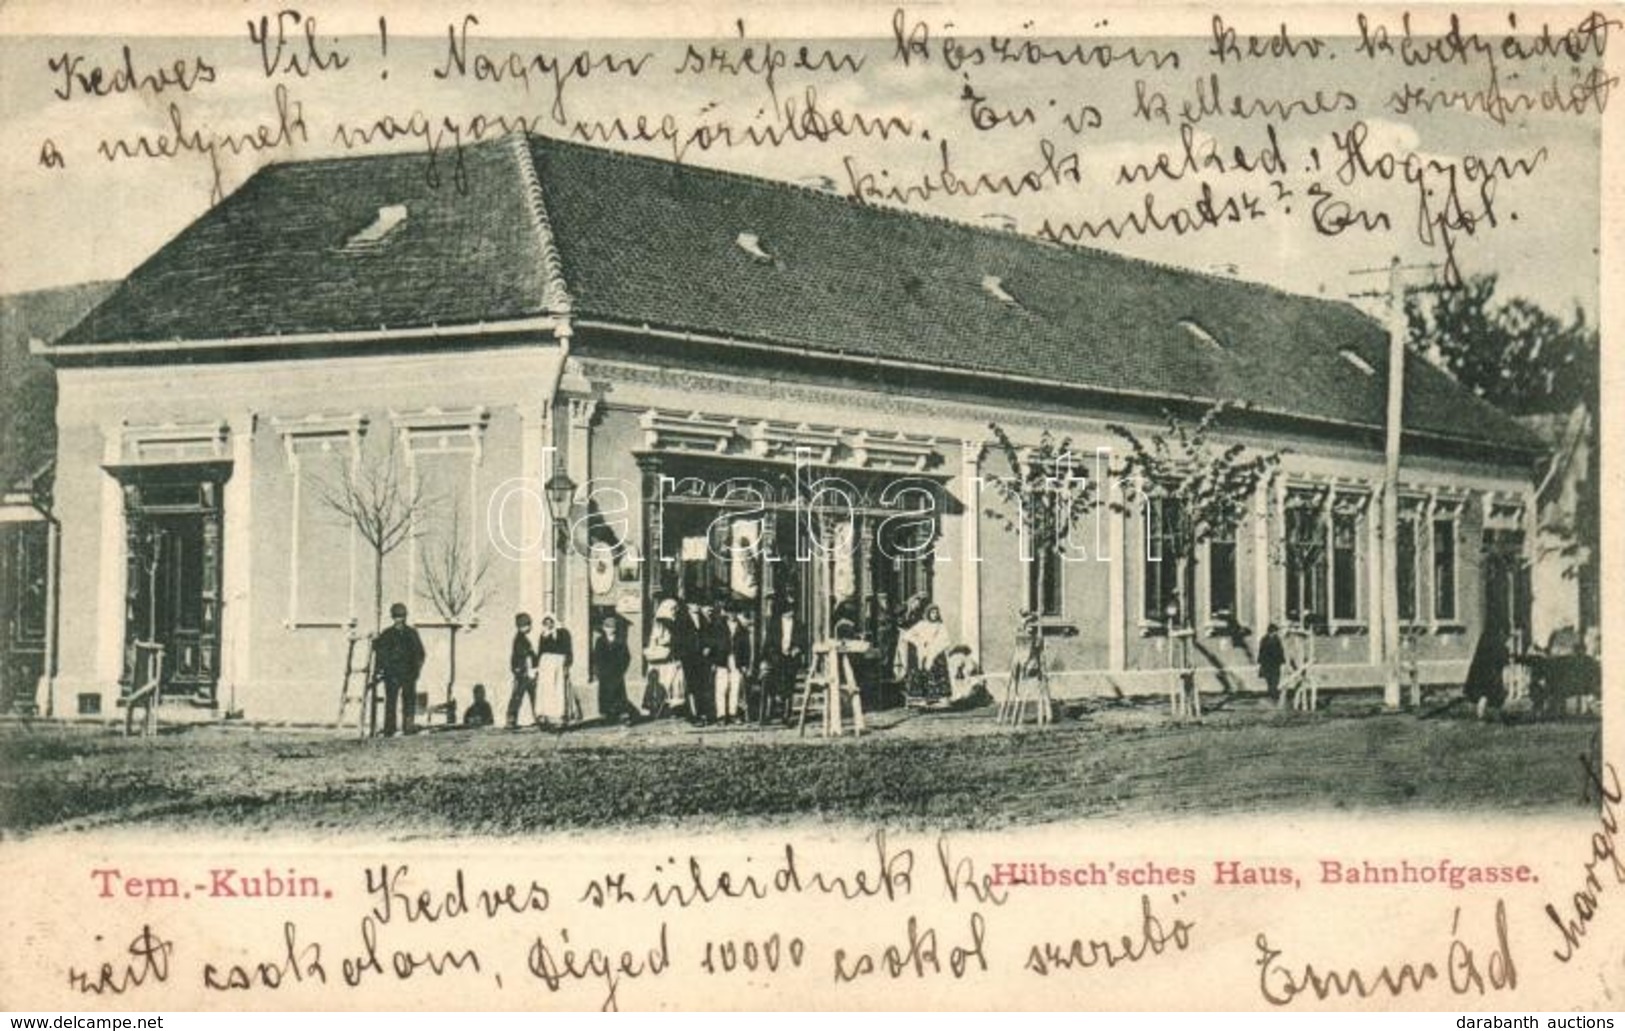 Kedves Vili! Nagyon szépen köszönöm kedv. kártyádat
a melynek nagyon megörültem. Én is kellemes szünidőt
kivánok neked! Hogyan
mulatsz? Én jol.
darabanth
Tem.-Kubin.
Hübsch'sches Haus, Bahnhofgasse.
Kedves szüleidnek ke-
zeit csokolom, Téged 10000 csokol szerető
Emmád
Margit
darabanth auctions
www.delcampe.net